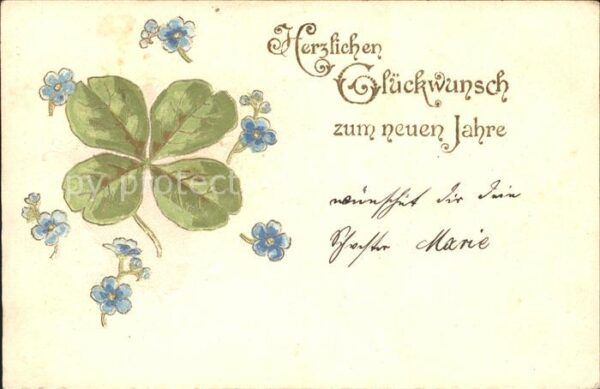 Herzlichen
Glückwunsch
zum neuen Jahre
wünschet dir dein
Schwester Marie